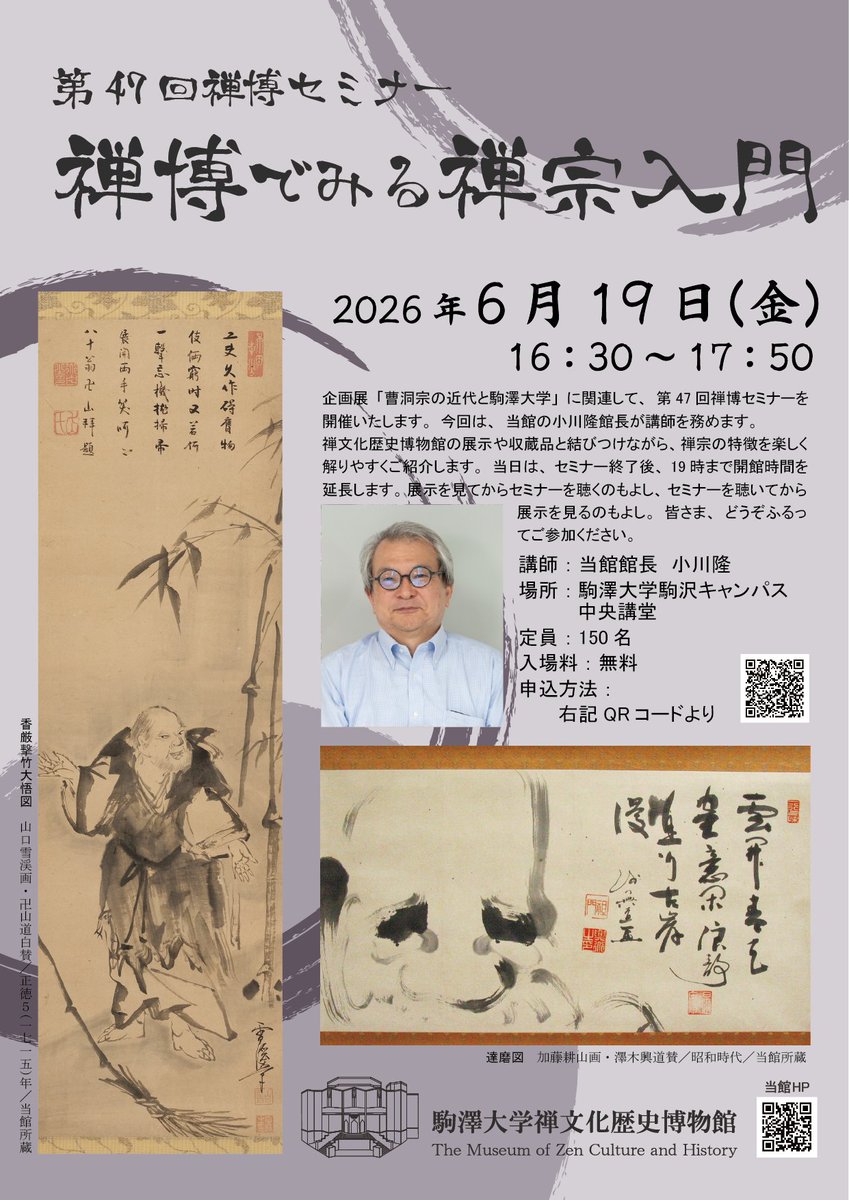 第47回禅博セミナー
禅博でみる禅宗入門
2026年6月19日(金)
16：30～17：50
企画展「曹洞宗の近代と駒澤大学」に関連して、第47回禅博セミナーを
開催いたします。今回は、当館の小川隆館長が講師を務めます。
禅文化歴史博物館の展示や収蔵品と結びつけながら、禅宗の特徴を楽しく
解りやすくご紹介します。当日は、セミナー終了後、19時まで開館時間を
延長します。展示を見てからセミナーを聴くのもよし、セミナーを聴いてから
展示を見るのもよし。皆さま、どうぞふるっ
てご参加ください。
講師：当館館長　小川隆
場所：駒澤大学駒沢キャンパス
中央講堂
定員：150名
入場料：無料
申込方法：
右記QRコードより
工夫久作碍膺物
伎倆窮時又若何
一撃忘機抛掃帚
展開両手笑呵々
八十翁卍山拝題
香厳撃竹大悟図　山口雪渓画・卍山道白賛／正徳5(一七一五)年／当館所蔵
達磨図　加藤耕山画・澤木興道賛／昭和時代／当館所蔵
当館HP
駒澤大学禅文化歴史博物館
The Museum of Zen Culture and History